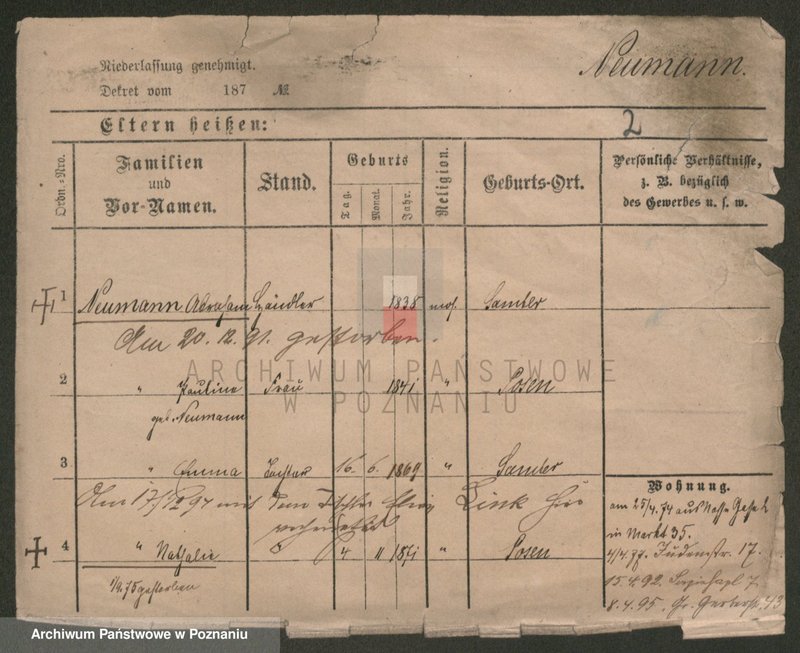 Niederlassung genehmigt.
Neumann.
Dekret vom 187 №
Eltern heißen:
2
Ordn.-Nro.
Familien
und
Vor-Namen.
Stand.
Geburts
Tag.
Monat.
Jahr.
Religion.
Geburts-Ort.
Persönliche Verhältnisse,
z. B. bezüglich
des Gewerbes u. s. w.
1 Neumann Abraham Händler 1838 mos. Samter
Am 20.12.91. gestorben.
ARCHIWUM PAŃSTWOWE
W POZNANIU
2 " Pauline Frau 1841 " Posen
geb. Neumann
3 " Emma Tochter 16. 6. 1869 " Samter
Am 17/12 94 mit dem Link hier
verheiratet
4 " Nathalie 4 11 1871 " Posen
1/9.75 gestorben
Wohnung.
am 25/4.74 aus
in Markt 35.
4/4.77. Judenstr. 17.
15.4.92. 7
8.4.95. Gr. Gerberstr. 43
Archiwum Państwowe w Poznaniu